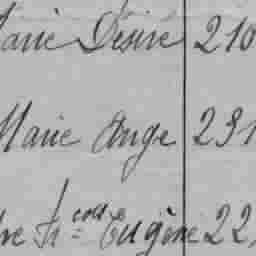 Marie Désiré 210
Marie Ange 231
Eugène 22